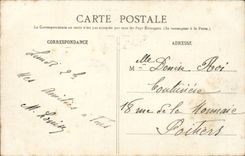 CARTE POSTALE
La Correspondance au recto n'est pas acceptée par tous les Pays Étrangers. (Se renseigner à la Poste.)
CORRESPONDANCE
ADRESSE
Mlle Denise Roi
Couturière
18 rue de la Monnaie
Poitiers
Amitiés à Tous
M.